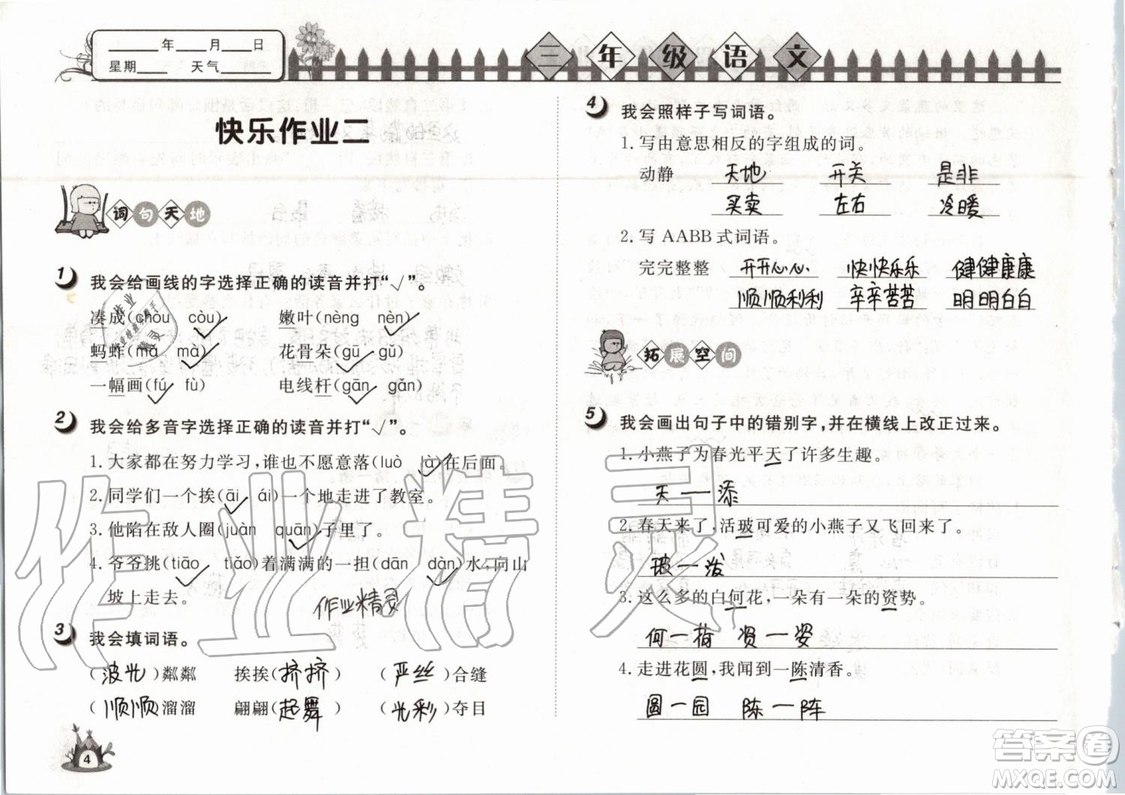 ____年____月____日
星期____ 天气____
三年级语文
快乐作业二
词句天地
1 我会给画线的字选择正确的读音并打“√”。
凑成(chòu còu√) 嫩叶(nèng nèn√)
蚂蚱(mǎ mà√) 花骨朵(gū√ gǔ)
一幅画(fú√ fù) 电线杆(gān√ gǎn)
2 我会给多音字选择正确的读音并打“√”。
1. 大家都在努力学习,谁也不愿意落(luò là√)在后面。
2. 同学们一个挨(āi√ ái)一个地走进了教室。
3. 他陷在敌人圈(juàn quān√)子里了。
4. 爷爷挑(tiāo√ tiǎo)着满满的一担(dān dàn√)水,向山
坡上走去。
作业精灵
3 我会填词语。
(波光)粼粼 挨挨(挤挤) (严丝)合缝
(顺顺)溜溜 翩翩(起舞) (光彩)夺目
4
4 我会照样子写词语。
1. 写由意思相反的字组成的词。
动静 天地 开关 是非
买卖 左右 冷暖
2. 写 AABB 式词语。
完完整整 开开心心 快快乐乐 健健康康
顺顺利利 辛辛苦苦 明明白白
拓展空间
5 我会画出句子中的错别字,并在横线上改正过来。
1. 小燕子为春光平天了许多生趣。
天—添
2. 春天来了,活玻可爱的小燕子又飞回来了。
玻—泼
3. 这么多的白何花,一朵有一朵的资势。
何—荷 资—姿
4. 走进花圆,我闻到一陈清香。
圆—园 陈—阵
作业精灵
答案圈
MXQE.COM